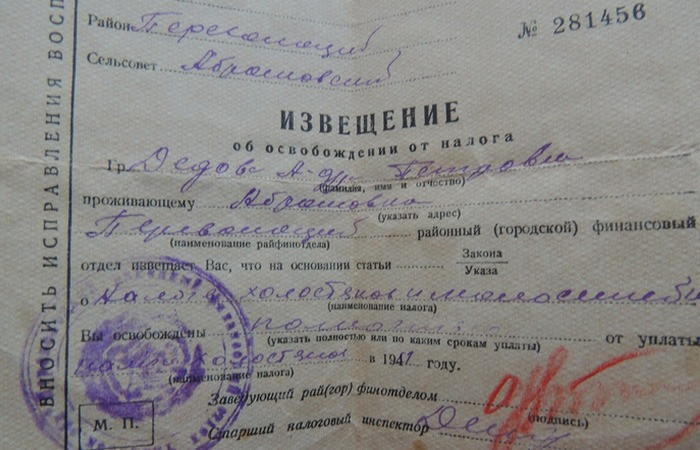 № 281456
Район Перевозский
Сельсовет Абрамовский
ИЗВЕЩЕНИЕ
об освобождении от налога
Гр. Дедов
(фамилия, имя и отчество)
проживающему Абрамовка
(указать адрес)
Перевозский районный (городской) финансовый
(наименование райфинотдела)
отдел извещает Вас, что на основании статьи Закона
Указа
о налоге холостяков и
(наименование налога)
Вы освобождены от уплаты
(указать полностью или по каким срокам уплаты)
холостяков в 1941 году.
(наименование налога)
Заведующий рай(гор) финотделом
(подпись)
М. П.
Старший налоговый инспектор
ВНОСИТЬ ИСПРАВЛЕНИЯ ВОСП